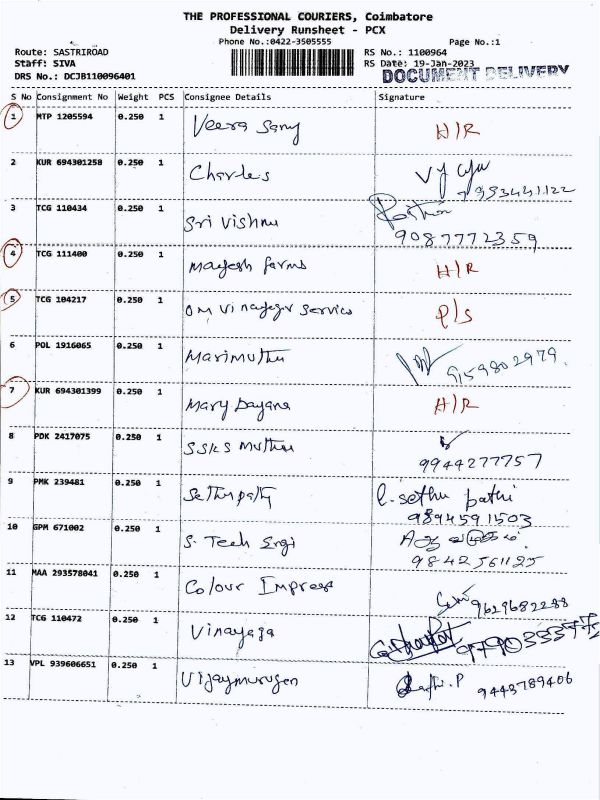 THE PROFESSIONAL COURIERS, Coimbatore
Delivery Runsheet - PCX
Phone No.:0422-3505555 Page No.:1
Route: SASTRIROAD RS No.: 1100964
Staff: SIVA RS Date: 19-Jan-2023
DRS No.: DCJB110096401 DOCUMENT DELIVERY
S No Consignment No Weight PCS Consignee Details Signature
1 MTP 1205594 0.250 1 Veera Samy H/R
2 KUR 694301258 0.250 1 Charles
3 TCG 110434 0.250 1 Sri Vishnu
9087772359
4 TCG 111400 0.250 1 Mayesh farms H/R
5 TCG 104217 0.250 1 OM Vinayagar Service P/S
6 POL 1916065 0.250 1 Marimuthu 9159802979.
7 KUR 694301399 0.250 1 Mary Dayana H/R
8 PDK 2417075 0.250 1 SSKS Muthu
9944277757
9 PMK 239481 0.250 1 Sethupathy P. Sethu pathi
9894591503
10 GPM 671002 0.250 1 S. Tech Engi
9842561125
11 MAA 293578041 0.250 1 Colour Impress
9629682288
12 TCG 110472 0.250 1 Vinayaga
13 VPL 939606651 0.250 1 Vijaymurugen 9443789406